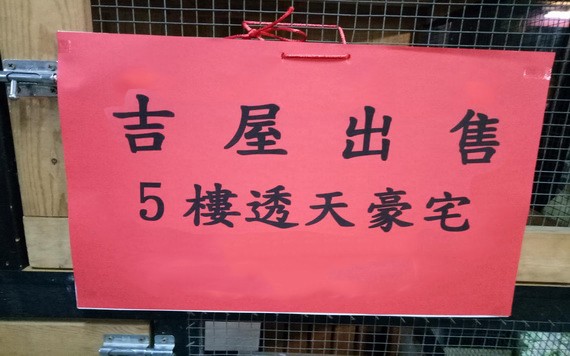 吉屋出售
5樓透天豪宅